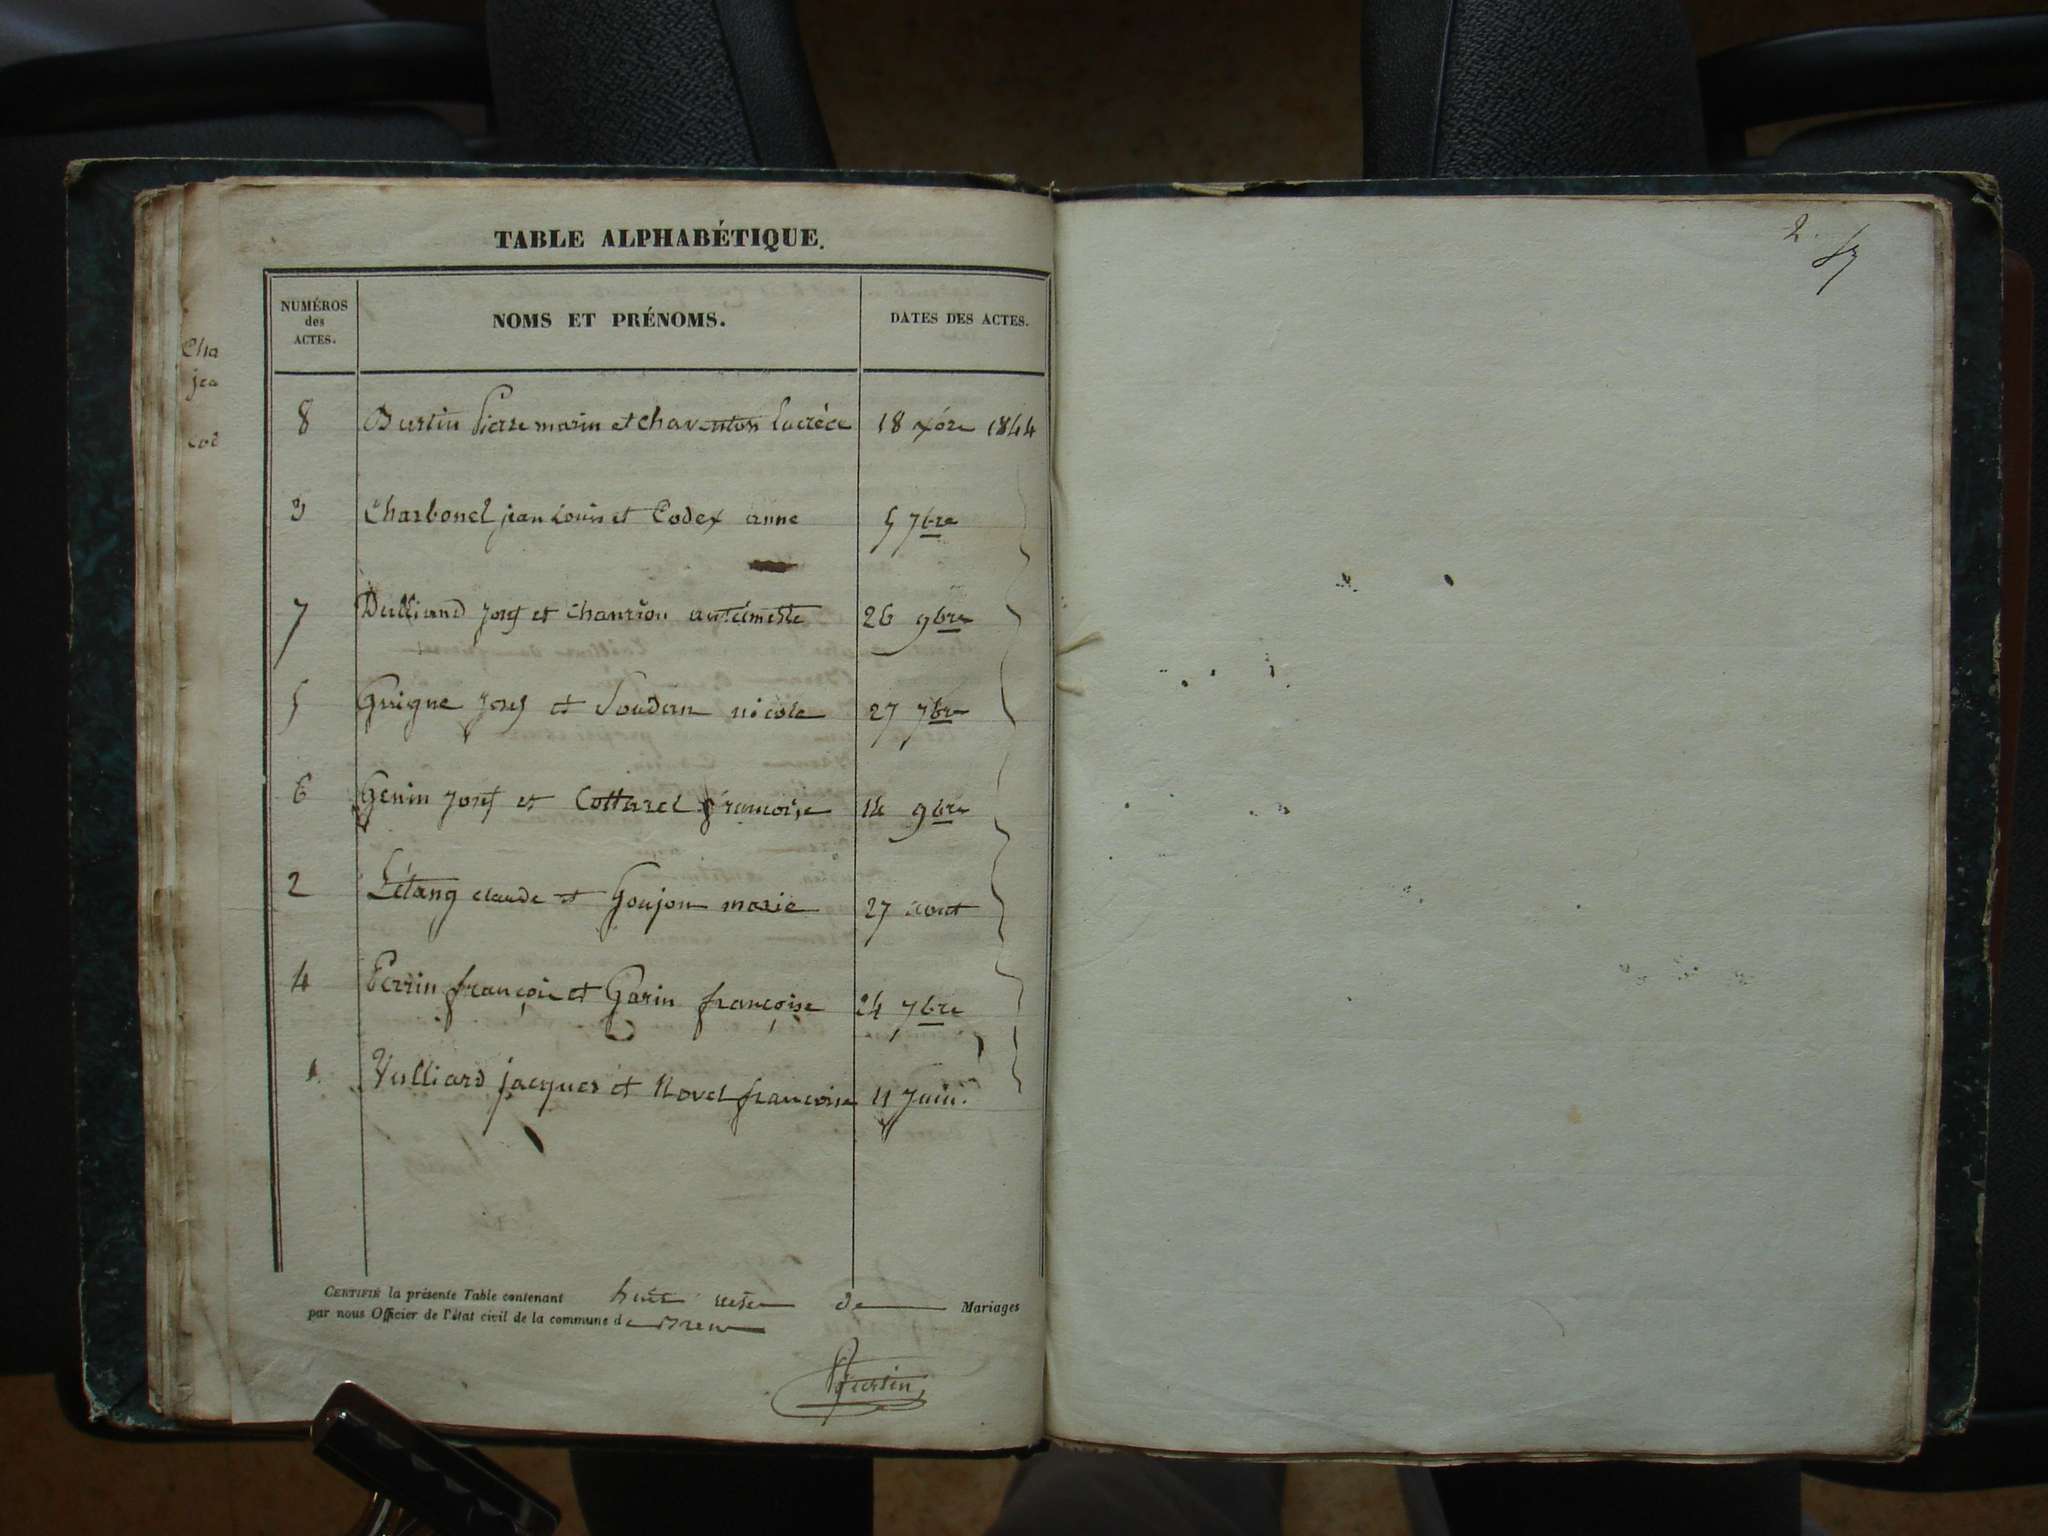 TABLE ALPHABÉTIQUE.
NUMÉROS
des
ACTES.
NOMS ET PRÉNOMS.
DATES DES ACTES.
8 Burtin Pierre marin et chaventon Lucrèce 18 xbre 1844
3 Charbonel jean Louis et Codex anne 5 7bre
7 Dulliand Josef et chanrion 26 9bre
5 Guigne Josef et nicole 27 7bre
6 Genin Josef et Cottarel françoise 14 9bre
2 Létang claude et Goujon marie 27 aout
4 Perrin françois et Garin françoise 24 7bre
1 Vulliard jacques et Novel françoise 11 Juin.
CERTIFIÉ la présente Table contenant huit actes de Mariages
par nous Officier de l'état civil de la commune de
Burtin
2.
Cha
jea